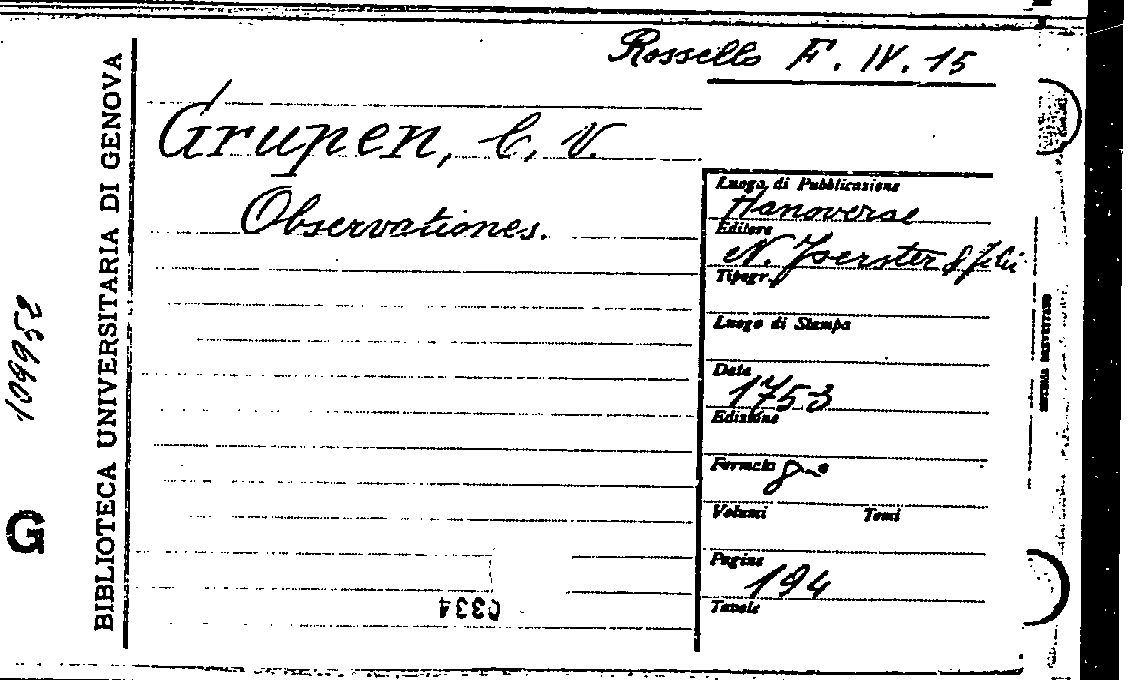 Rossello F. IV. 15
Grupen, C. V.
Observationes.
Luogo di Pubblicazione
Hanoverae
Editore
N. Foerster & filii
Tipogr.
Luogo di Stampa
Data
1753
Edizione
Formato 8°
Volumi Tomi
Pagine
194
Tavole
0334
BIBLIOTECA UNIVERSITARIA DI GENOVA
109952
G